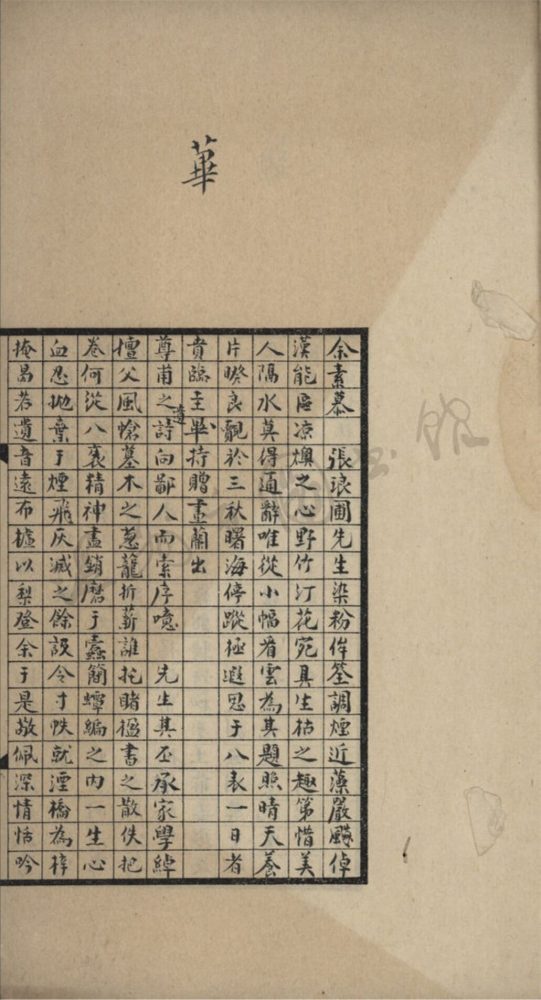 華
余素慕　張琅圃先生染粉侔荃調煙近藻嚴颸倬
漢能區凉燠之心野竹汀花宛具生枯之趣第惜美
人隔水莫得通辭唯從小幅看雲為其題照晴天養
片暌良覿於三秋曙海停蹤極遐思于八表一日者
貴臨主畢持贈畫蘭出
尊甫之遺詩向鄙人而索序噫　先生其丕承家學綽
擅父風愴墓木之蔥蘢折薪誰托睹楹書之散佚把
卷何從八袠精神盡銷磨于蠹簡蟫編之内一生心
血忍拋棄于煙飛灰滅之餘設令寸帙就湮橋為梓
掩曷若遺音遠布櫨以梨登余于是敬佩深情恬吟